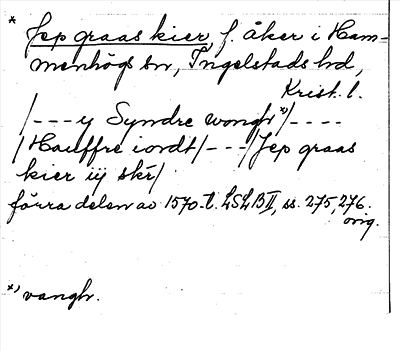 * Jep graas kier, f. åker i Ham-
menhögs sn, Ingelstads hd,
Krist. l.
/---y Syndre wongh *)/----
/Hauffre iordt/---/Jep graas
kier iij skr/
förra delen av 1570-t. LSLB II, ss. 275, 276.
orig.
*) vangh.